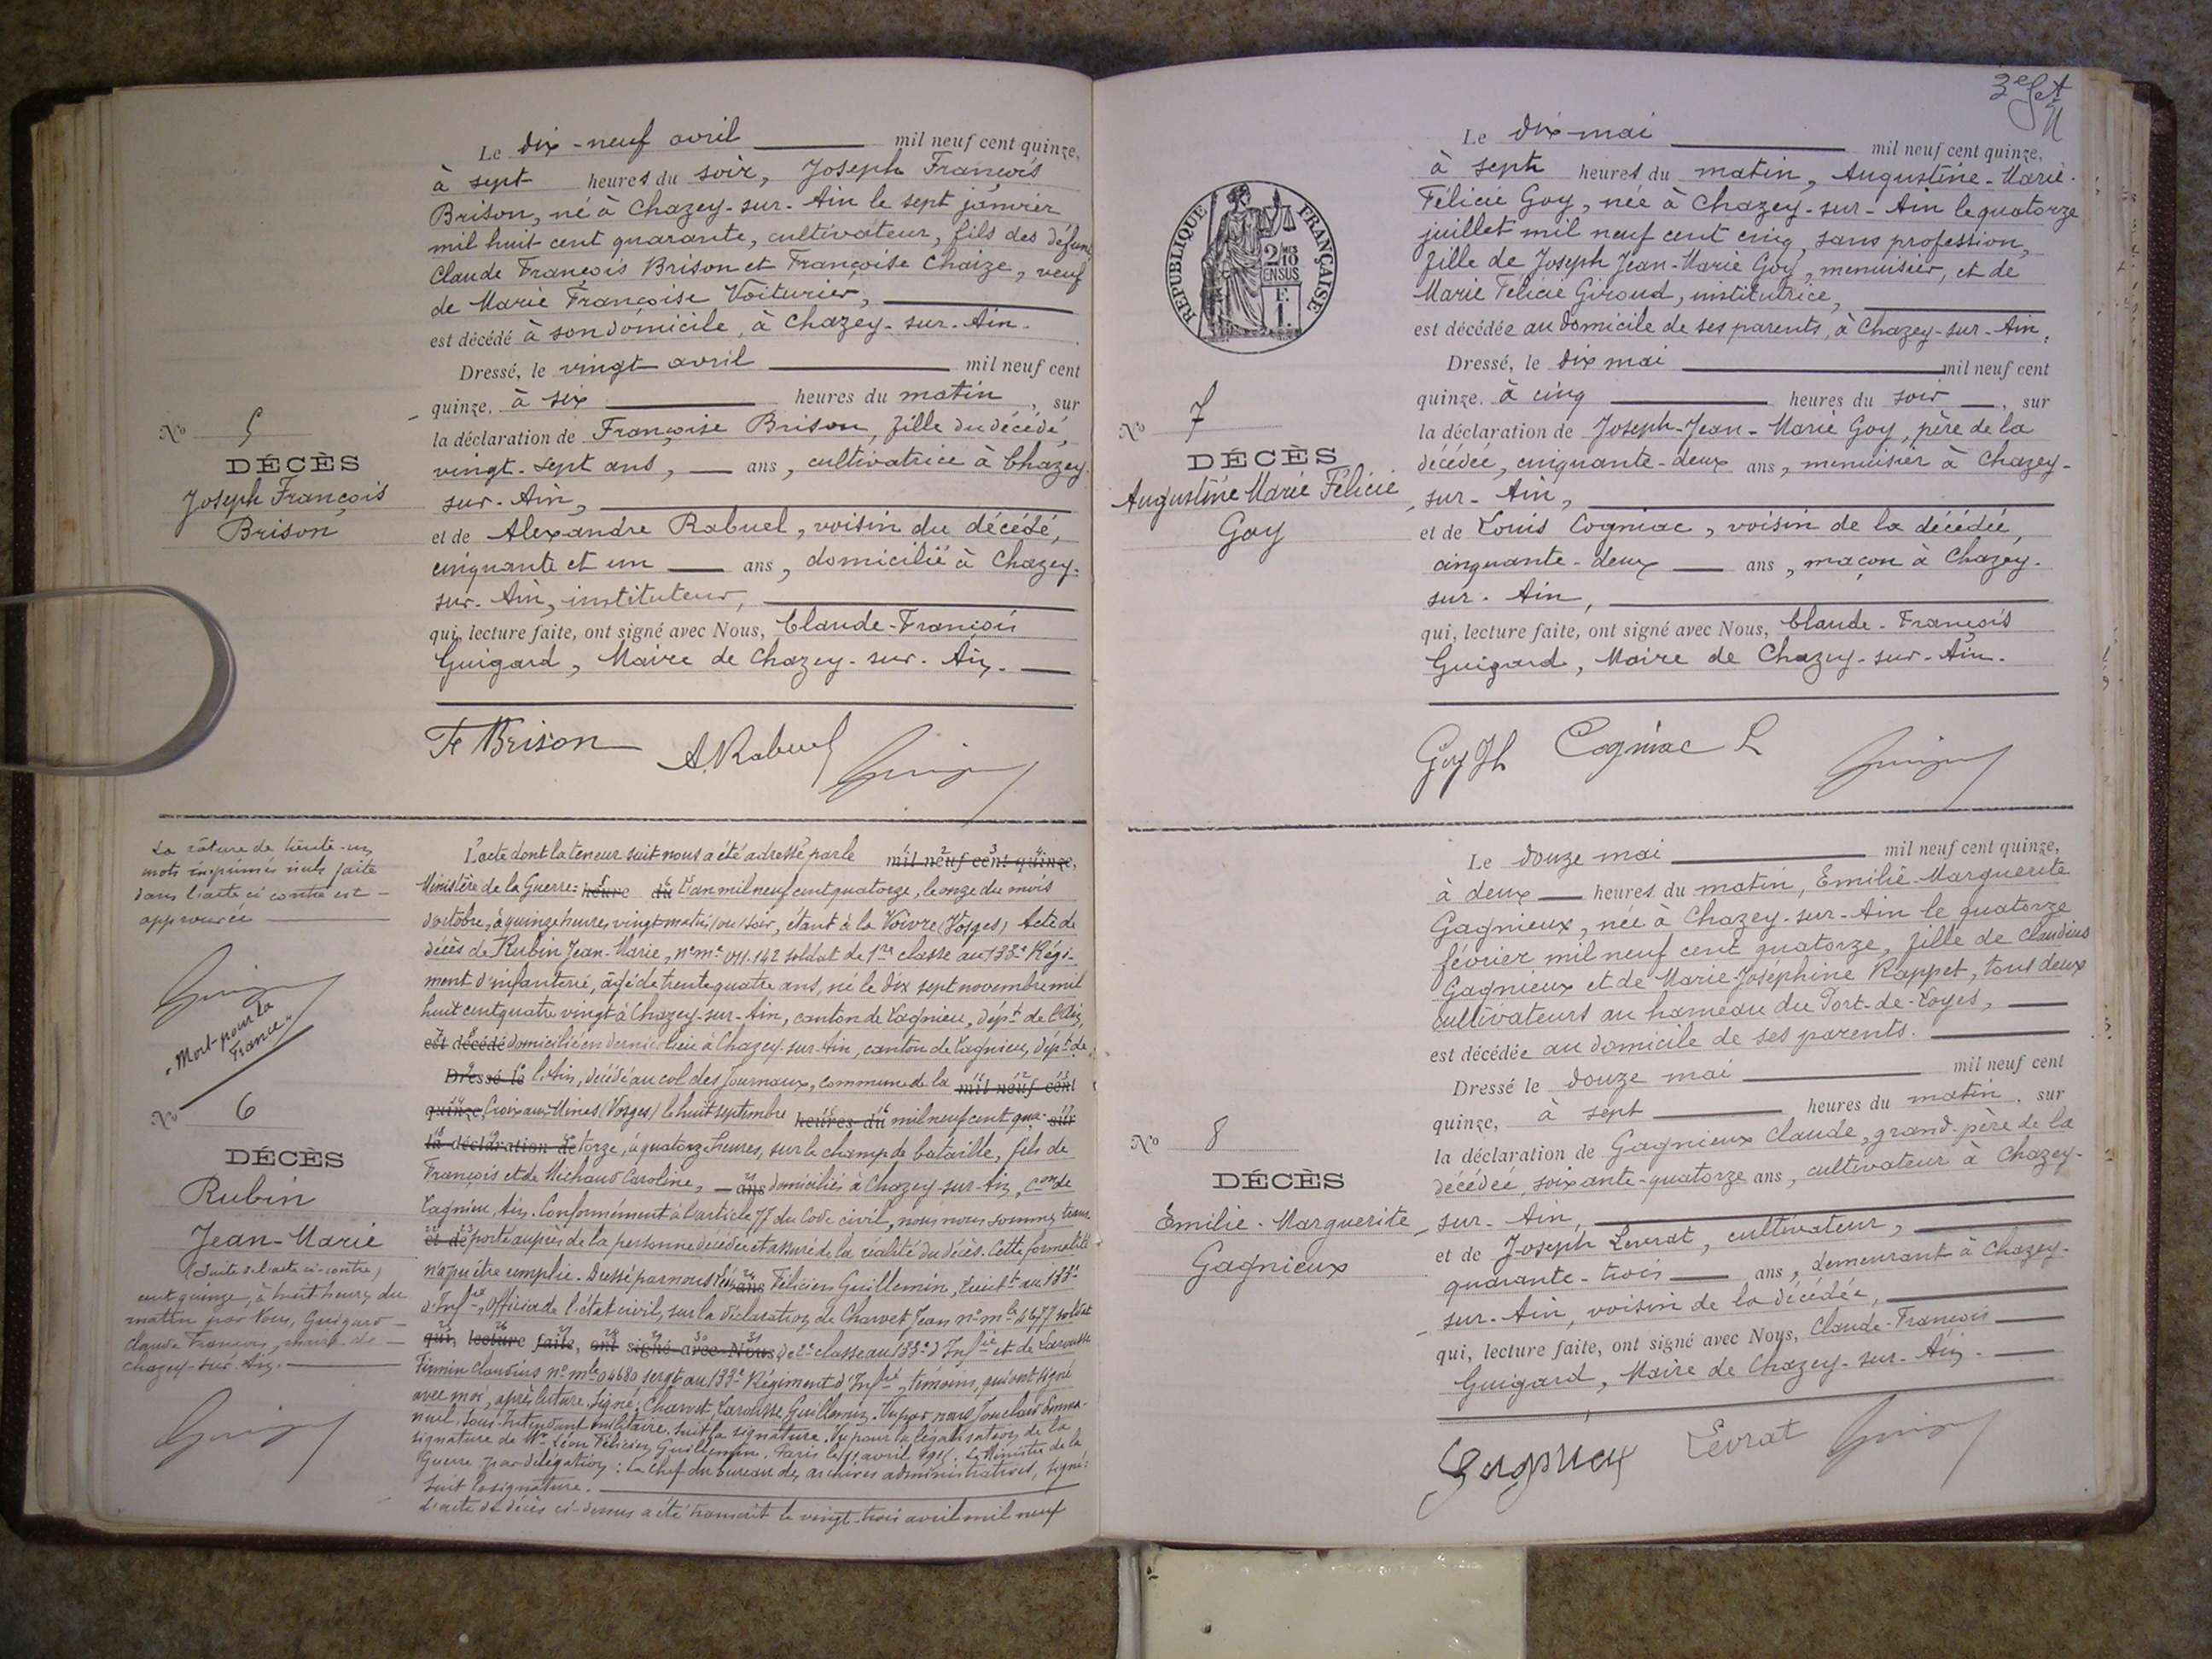 Le dix-neuf avril mil neuf cent quinze,
à sept heures du soir, Joseph François
Brison, né à Chazey-sur-Ain le sept janvier
mil huit cent quarante, cultivateur, fils des défunts
Claude François Brison et Françoise Chaize, veuf
de Marie Françoise Voiturier,
est décédé à son domicile, à Chazey-sur-Ain.
Dressé, le vingt avril mil neuf cent
quinze, à six heures du matin, sur
la déclaration de Françoise Brison, fille du décédé,
vingt-sept ans, — ans, cultivatrice à Chazey-
sur-Ain,
et de Alexandre Rabuel, voisin du décédé,
cinquante et un — ans, domicilié à Chazey-
sur-Ain, instituteur,
qui, lecture faite, ont signé avec Nous, Claude-François
Guigard, Maire de Chazey-sur-Ain.
No 5
DÉCÈS
Joseph François
Brison
Fe Brison A. Rabuel
La rature de trente-un
mots imprimés nuls faite
dans l'acte ci contre est
approuvée
"Mort pour la
France"
No 6
DÉCÈS
Rubin
Jean-Marie
(Suite de l'acte ci-contre)
cent quinze, à huit heures du
matin par Nous, Guigard
Claude François, maire de
Chazey-sur-Ain.
L'acte dont la teneur suit nous a été adressé par le mil neuf cent quinze,
Ministère de la Guerre: heure du L'an mil neuf cent quatorze, le onze du mois
d'octobre, à quinze heures vingt matin (ou) soir, étant à la Voivre (Vosges) Acte de
décès de Rubin Jean-Marie, n° me 011.142 soldat de 1re classe au 133e Régi-
ment d'infanterie, âgé de trente quatre ans, né le dix sept novembre mil
huit cent quatre vingt à Chazey-sur-Ain, canton de Lagnieu, dépt de l'Ain,
est décédé domicilié en dernier lieu à Chazey-sur-Ain, canton de Lagnieu, dépt de
Dressé le l'Ain, décédé au col des Journaux, commune de la mil neuf cent
quinze, Croix aux Mines (Vosges) le huit septembre heures du mil neuf cent qua- sur
la déclaration de torze, à quatorze heures, sur le champ de bataille, fils de
François et de Michaud Caroline, — ans domiciliés à Chazey-sur-Ain, con de
Lagnieu, Ain. Conformément à l'article 77 du Code civil, nous nous sommes trans
et de porté auprès de la personne décédée et assuré de la réalité du décès. Cette formalité
n'a pu être remplie. Dressé par nous Léon ans Félicien Guillemin, Lieutt au 133e
d'Infie, Officier de l'état civil, sur la déclaration de Charvet Jean n° mle 4677 soldat
qui, lecture faite, ont signé avec Nous, de 2e classe au 133e d'Infie et de Larousse
Firmin Claudius n° mle 04680 sergt au 133e Régiment d'Infie, témoins, qui ont signé
avec moi, après lecture. Signé: Charvet, Larousse, Guillemin. Vu par nous
nuel, Sous-Intendant militaire. Suit la signature. Vu pour la légalisation de la
signature de Mr Léon Félicien Guillemin. Paris le 11 avril 1915. Le Ministre de la
Guerre par délégation: Le Chef du bureau des archives administratives, signé:
Suit la signature.
L'acte de décès ci-dessus a été transcrit le vingt-trois avril mil neuf
3e
Le dix mai mil neuf cent quinze,
à sept heures du matin, Augustine-Marie-
Félicie Goy, née à Chazey-sur-Ain le quatorze
juillet mil neuf cent cinq, sans profession,
fille de Joseph Jean-Marie Goy, menuisier, et de
Marie Félicie Giroud, institutrice,
est décédée au domicile de ses parents, à Chazey-sur-Ain,
Dressé, le dix mai mil neuf cent
quinze, à cinq heures du soir, sur
la déclaration de Joseph-Jean-Marie Goy, père de la
décédée, cinquante-deux ans, menuisier à Chazey-
sur-Ain,
et de Louis Cogniac, voisin de la décédée,
cinquante-deux — ans, maçon à Chazey-
sur-Ain,
qui, lecture faite, ont signé avec Nous, Claude-François
Guigard, Maire de Chazey-sur-Ain.
RÉPUBLIQUE FRANÇAISE
2/10
EN SUS
F.
1.
No 7
DÉCÈS
Augustine Marie Félicie
Goy
Goy Jh Cogniac L
Le douze mai mil neuf cent quinze,
à deux — heures du matin, Émilie-Marguerite
Gagnieux, née à Chazey-sur-Ain le quatorze
février mil neuf cent quatorze, fille de Claudius
Gagnieux et de Marie-Josephine Rappet, tous deux
cultivateurs au hameau du Port-de-Loyes,
est décédée au domicile de ses parents.
Dressé le douze mai mil neuf cent
quinze, à sept heures du matin, sur
la déclaration de Gagnieux Claude, grand-père de la
décédée, soixante-quatorze ans, cultivateur à Chazey-
sur-Ain,
et de Joseph Levrat, cultivateur,
quarante-trois — ans, demeurant à Chazey-
sur-Ain, voisin de la décédée,
qui, lecture faite, ont signé avec Nous, Claude-François
Guigard, Maire de Chazey-sur-Ain.
No 8
DÉCÈS
Émilie-Marguerite
Gagnieux
Gagnieux Levrat